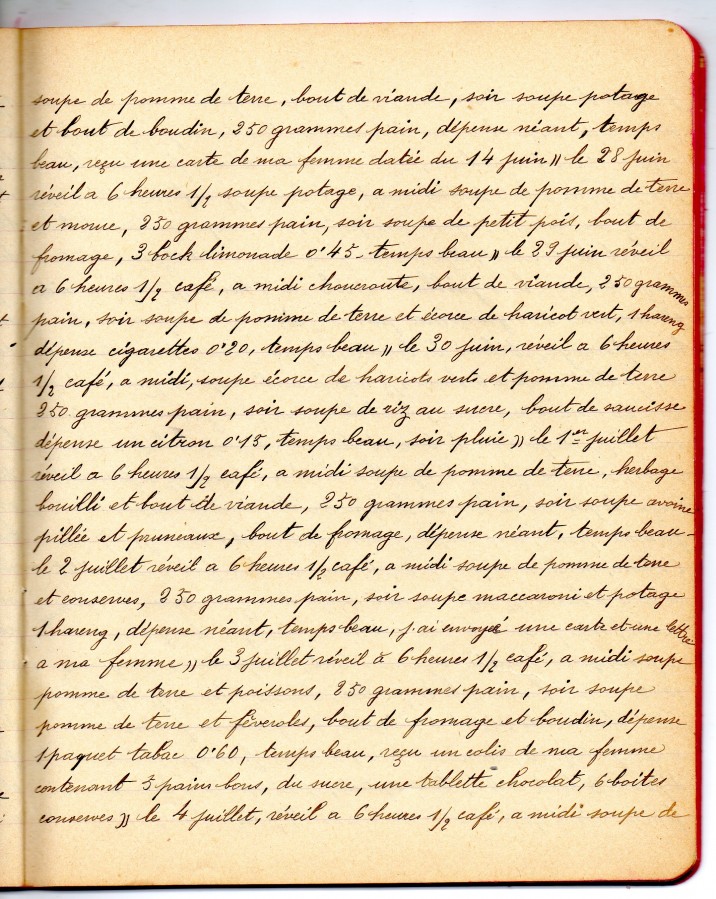 soupe de pomme de terre, bout de viande, soir soupe potage
et bout de boudin, 250 grammes pain, dépense néant, temps
beau, reçu une carte de ma femme datée du 14 juin " le 28 juin
réveil a 6 heures 1/2 soupe potage, a midi soupe de pomme de terre
et morue, 250 grammes pain, soir soupe de petit pois, bout de
fromage, 3 bock limonade 0'45 - temps beau " le 29 juin réveil
a 6 heures 1/2 café, a midi choucroute, bout de viande, 250 grammes
pain, soir soupe de pomme de terre et écorce de haricot vert, 1 hareng
dépense cigarettes 0'20, temps beau " le 30 juin, réveil a 6 heures
1/2 café, a midi, soupe écorce de haricots verts et pomme de terre
250 grammes pain, soir soupe de riz au sucre, bout de saucisse
dépense un citron 0'15, temps beau, soir pluie " le 1er juillet
réveil a 6 heures 1/2 café, a midi soupe de pomme de terre, herbage
bouilli et bout de viande, 250 grammes pain, soir soupe avoine
pillée et pruneaux, bout de fromage, dépense néant, temps beau -
le 2 juillet réveil a 6 heures 1/2 café, a midi soupe de pomme de terre
et conserves, 250 grammes pain, soir soupe maccaroni et potage
1 hareng, dépense néant, temps beau, j'ai envoyé une carte et une lettre
a ma femme " le 3 juillet réveil à 6 heures 1/2 café, a midi soupe
pomme de terre et poissons, 250 grammes pain, soir soupe
pomme de terre et féveroles, bout de fromage et boudin, dépense
1 paquet tabac 0'60, temps beau, reçu un colis de ma femme
contenant 5 pains bons, du sucre, une tablette chocolat, 6 boites
conserves " le 4 juillet, réveil a 6 heures 1/2 café, a midi soupe de